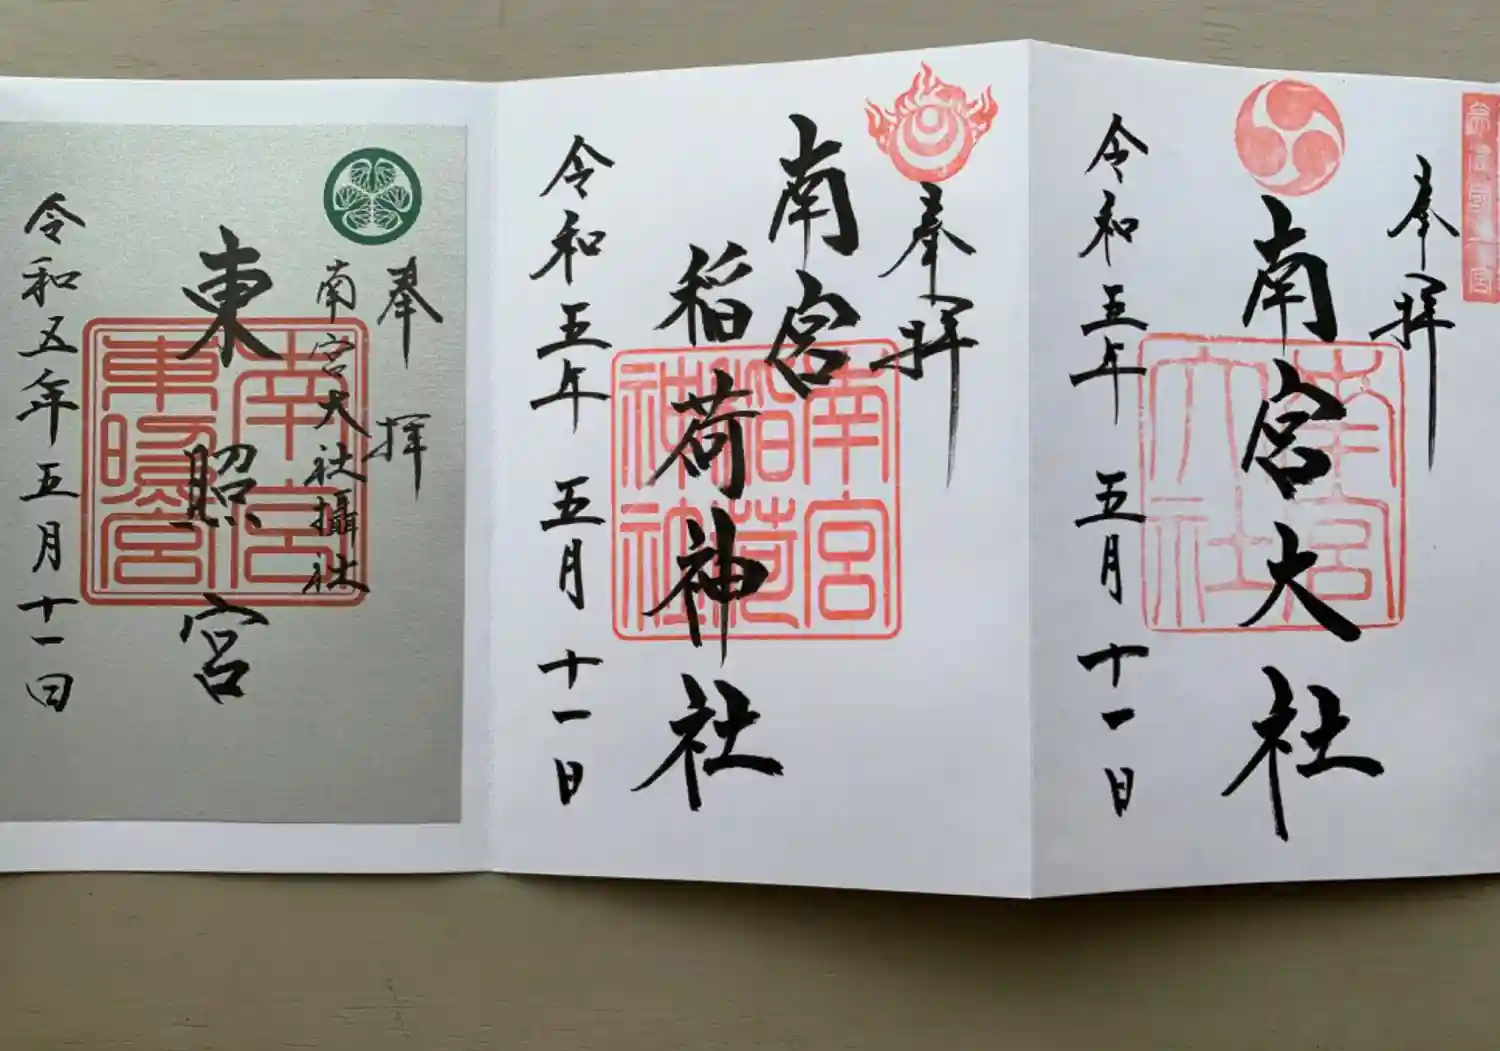 奉拝
南宮大社
南宮
大社
令和五年 五月十一日
奉拝
南宮
稲荷神社
南宮
稲荷
神社
令和五年 五月十一日
奉拝
南宮大社攝社
東照宮
南宮
東照宮
令和五年五月十一日